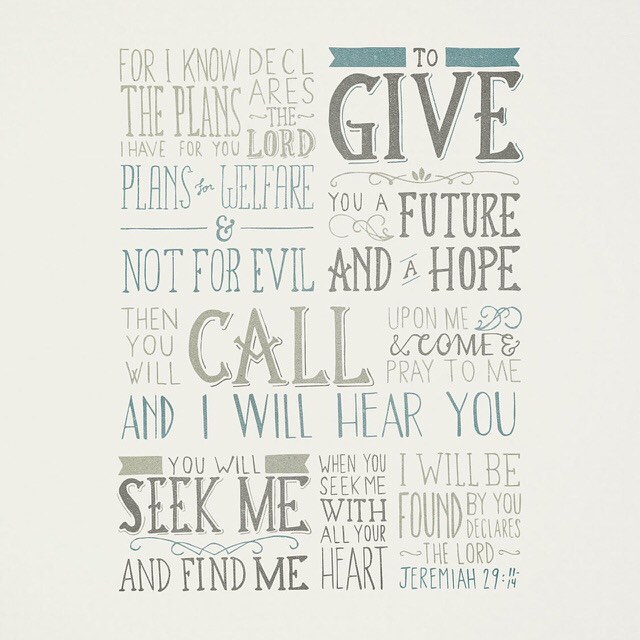 FOR I KNOW
THE PLANS
I HAVE FOR YOU
DECL
ARES
~THE~
LORD
PLANS for WELFARE
&
NOT FOR EVIL
TO
GIVE
YOU A FUTURE
AND A HOPE
THEN
YOU
WILL
CALL
UPON ME
& COME &
PRAY TO ME
AND I WILL HEAR YOU
YOU WILL
SEEK ME
AND FIND ME
WHEN YOU
SEEK ME
WITH
ALL YOUR
HEART
I WILL BE
FOUND BY YOU
DECLARES
~THE LORD~
JEREMIAH 29:11-14